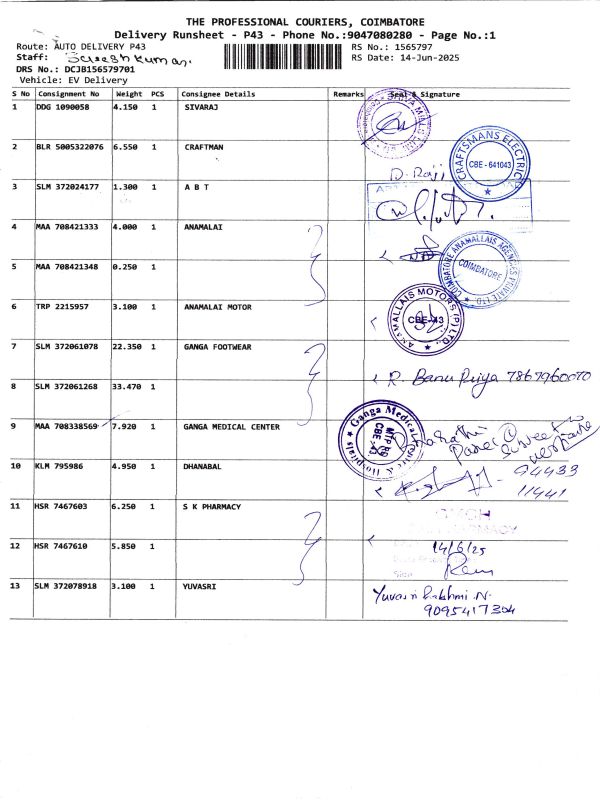 THE PROFESSIONAL COURIERS, COIMBATORE
Delivery Runsheet - P43 - Phone No.:9047080280 - Page No.:1
Route: AUTO DELIVERY P43 RS No.: 1565797
Staff: Sureshkumar. RS Date: 14-Jun-2025
DRS No.: DCJB156579701
Vehicle: EV Delivery
S No Consignment No Weight PCS Consignee Details Remarks Seal & Signature
1 DDG 1090058 4.150 1 SIVARAJ
2 BLR 5005322076 6.550 1 CRAFTMAN
CRAFTSMANS ELECTRIC
CBE - 641043
D. Raji
3 SLM 372024177 1.300 1 A B T
4 MAA 708421333 4.000 1 ANAMALAI
COIMBATORE ANAMALLAIS AGENCIES PRIVATE LTD
COIMBATORE
5 MAA 708421348 0.250 1
6 TRP 2215957 3.100 1 ANAMALAI MOTOR
ANAMALLAIS MOTORS (P) LTD.
CBE-43
7 SLM 372061078 22.350 1 GANGA FOOTWEAR
R. Banu Priya 7867960070
8 SLM 372061268 33.470 1
9 MAA 708338569 7.920 1 GANGA MEDICAL CENTER
Ganga Medical Centre & Hospitals
MTP RD
CBE-43
10 KLM 795986 4.950 1 DHANABAL
94433
11941
11 HSR 7467603 6.250 1 S K PHARMACY
PHARMACY
12 HSR 7467610 5.850 1
14/6/25
Sign
13 SLM 372078918 3.100 1 YUVASRI
Yuvasri Lakshmi.N.
9095417304